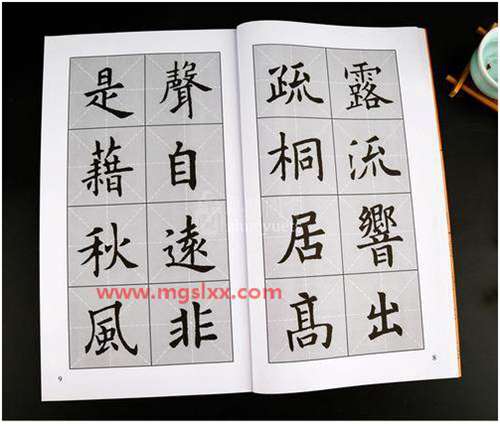 露流響出
疏桐居髙
8
聲自遠非
是藉秋風
9
www.mgslxx.com